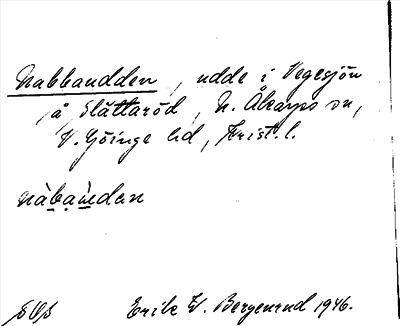 Nabbaudden, udde i Vegesjön
på Slättaröd, N. Åkarps sn,
V. Göinge hd, Krist. l.
Erik W. Bergenrud 1946.